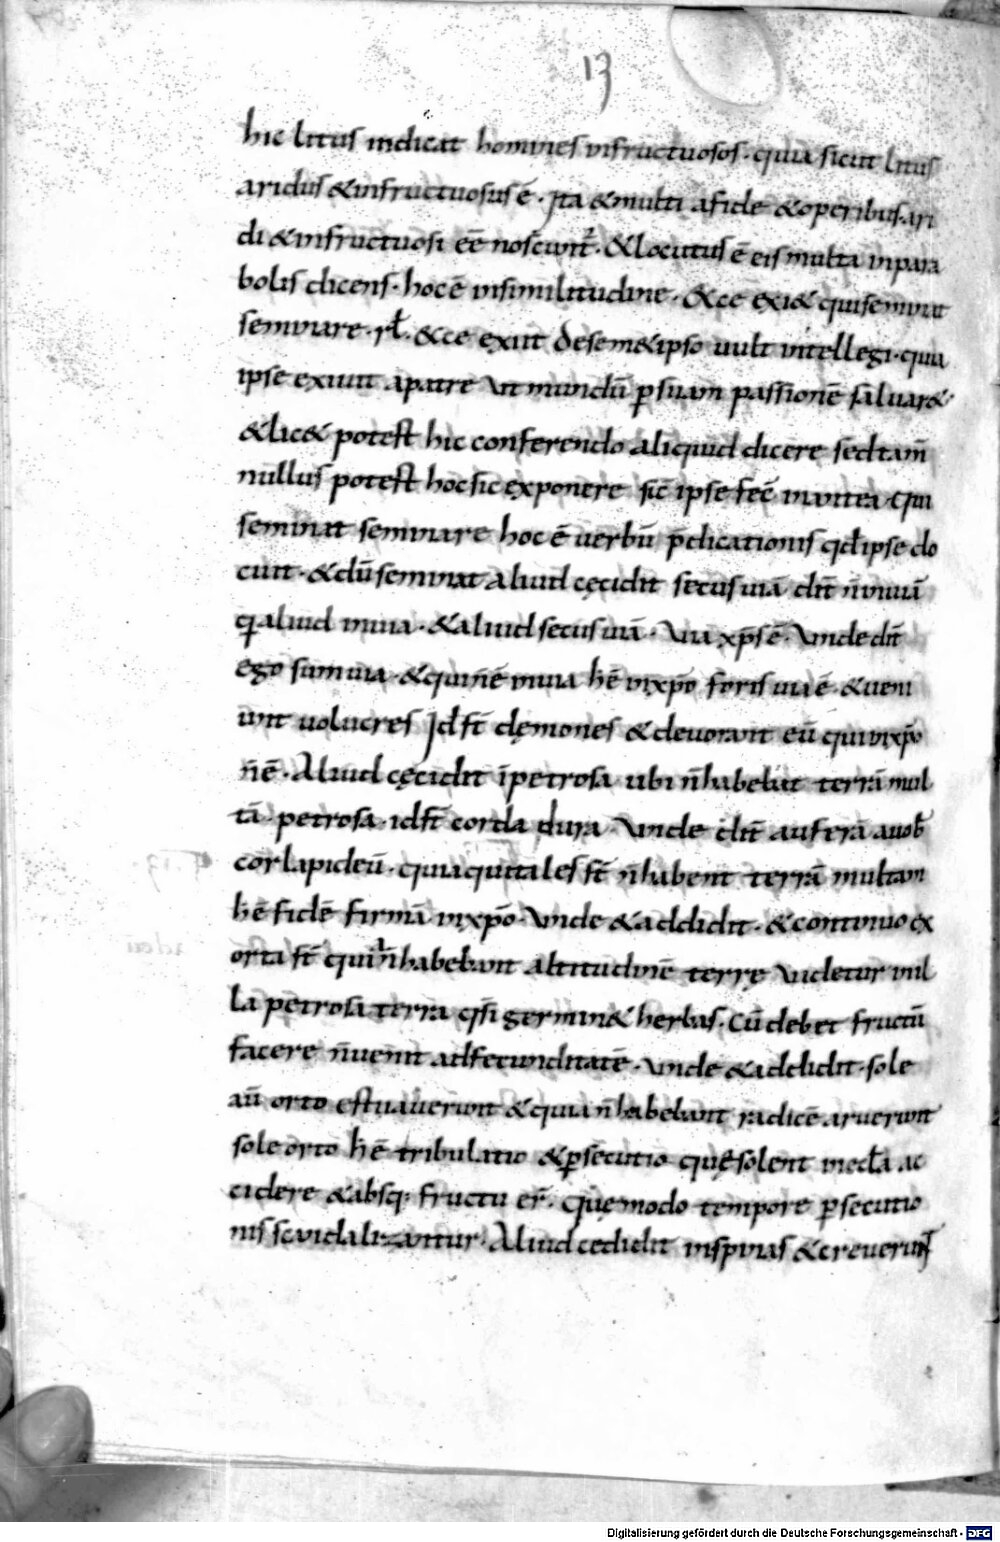 13
hic litus indicat homines infructuosos · quia sicut litus
aridus & infructuosus ē · Ita & multi a fide & operibus · ari
di & infructuosi eē noscunt̄ · & locutus ē eis multa in para
bolis dicens · hoc ē in similitudine · &ce exi& qui seminat
seminare · &ce exiit de sem&ipso uult intellegi · quia
ipse exiuit a patre ut mundū p suam passionē saluar&
& lic& potest hic conferendo aliquid dicere sed tam̄
nullus potest hoc sic exponere sic̄ ipse fec̄ in antea · qui
seminat seminare hoc ē uerbū p̄dicationis qđ ipse do
cuit · & dū seminat aliud cęcidit secus uiā dn̄t n̄ in uiā
q aliud in uia · & aliud secus uiā · Uia xp̄s ē · Unde dn̄t
ego sum uia · & qui n̄ ē in uia h̄ ē in xp̄o foris uia ē · & ueni
unt uolucres Id st̄ dęmones & deuorant eū qui in xp̄o
n̄ ē · Aliud cęcidit ī petrosa ubi n̄ habebat terrā mul
tā · petrosa · id st̄ corda dura · Unde dn̄t auferā a uob̄
cor lapideū · quia qui tales st̄ n̄ habent terrā multam
h̄ ē fidē firmā in xp̄o · Unde & addidit · & continuo ex
orta st̄ qui n̄ habebant altitudinē terrę Uidetur in il
la petrosa terra q̄si germin& herbas · Cū debet fructū
facere n̄ uenit ad fecunditatē · unde & addidit · sole
aū orto estuauerunt & quia n̄ habebant radicē aruerunt
sole orto h̄ ē tribulatio & psecutio quę solent in eccła ac
cidere & absq; fructu er̄ · Quęmodo tempore psecutio
nis scandalizantur · Aliud cecidit in spinas & creuerunt